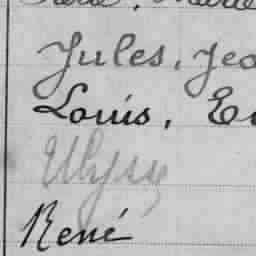 Jules, Jea
Louis, E
Ulysse
René